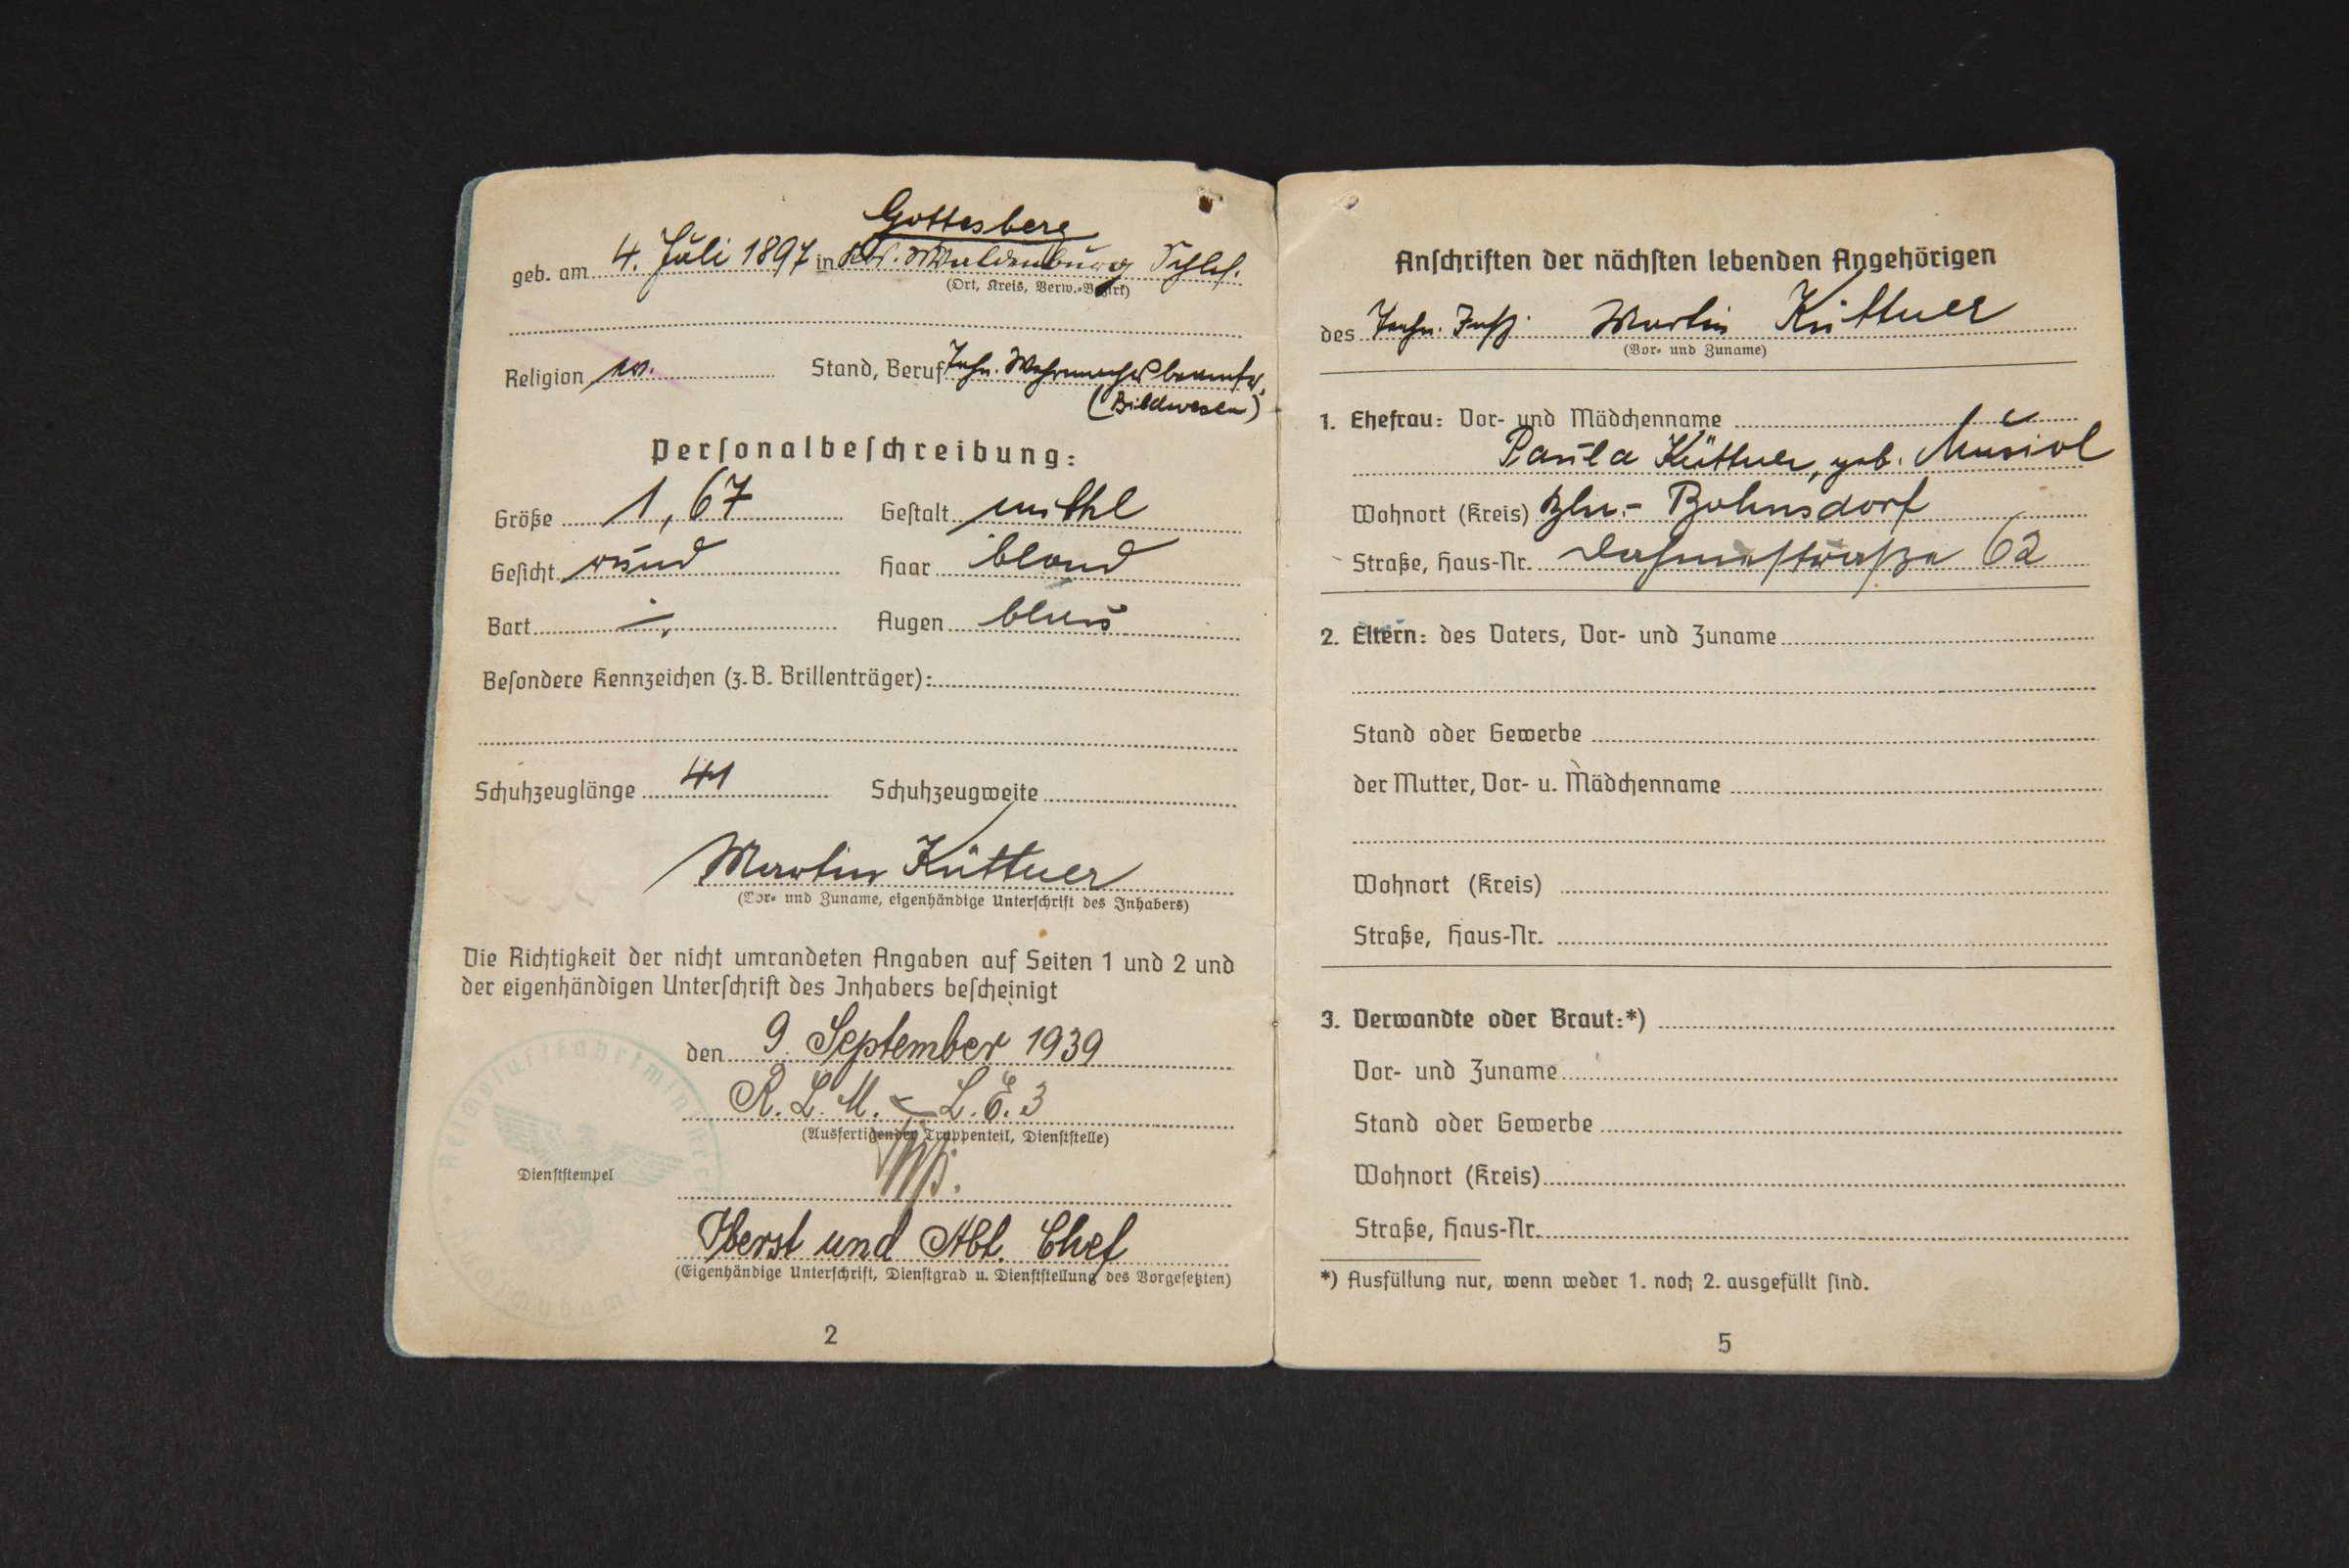 Gottesberg
geb. am 4. Juli 1897 in Waldenburg Schles.
(Ort, Kreis, Verw.-Bezirk)
Religion ev. Stand, Beruf Techn. Wehrmachtbeamter
(Bildwesen)
Personalbeschreibung:
Größe 1,67 Gestalt mittel
Gesicht rund Haar blond
Bart Augen blau
Besondere Kennzeichen (z. B. Brillenträger):
Schuhzeuglänge 41 Schuhzeugweite
Martin Küttner
(Vor- und Zuname, eigenhändige Unterschrift des Inhabers)
Die Richtigkeit der nicht umrandeten Angaben auf Seiten 1 und 2 und
der eigenhändigen Unterschrift des Inhabers bescheinigt
den 9. September 1939
R. L. M. - L. E. 3
(Ausfertigender Truppenteil, Dienststelle)
Dienststempel
Oberst und Abt. Chef
(Eigenhändige Unterschrift, Dienstgrad u. Dienststellung des Vorgesetzten)
2
Anschriften der nächsten lebenden Angehörigen
des Techn. Insp. Martin Küttner
(Vor- und Zuname)
1. Ehefrau: Vor- und Mädchenname
Paula Küttner, geb. Musiol
Wohnort (Kreis) Bln.- Bohnsdorf
Straße, Haus-Nr. Dahmestraße 62
2. Eltern: des Vaters, Vor- und Zuname
Stand oder Gewerbe
der Mutter, Vor- u. Mädchenname
Wohnort (Kreis)
Straße, Haus-Nr.
3. Verwandte oder Braut:*)
Vor- und Zuname
Stand oder Gewerbe
Wohnort (Kreis)
Straße, Haus-Nr.
*) Ausfüllung nur, wenn weder 1. noch 2. ausgefüllt sind.
5